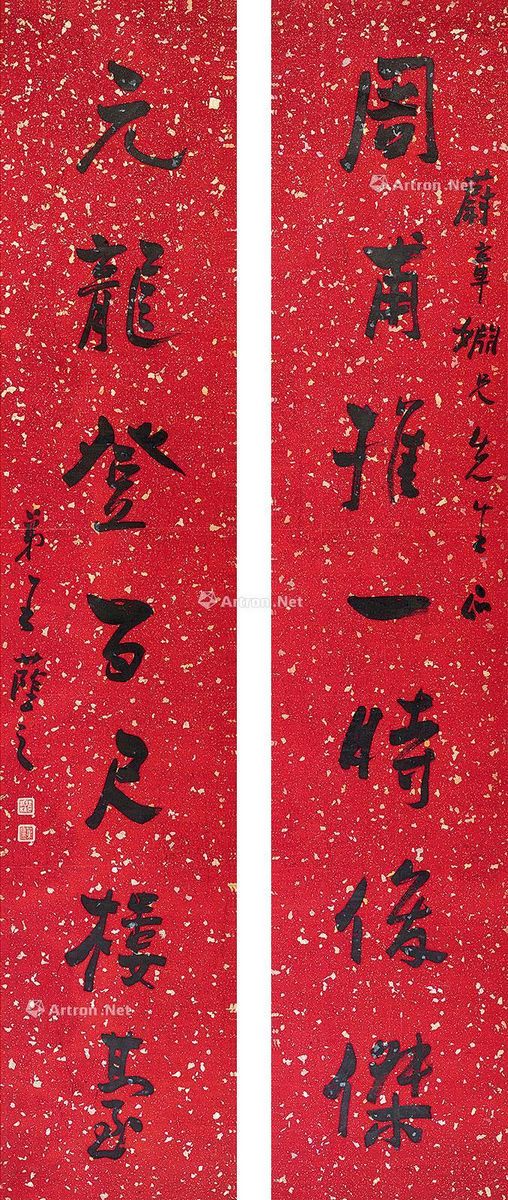 周甫推一時俊傑
蔚章婣兄先生
元龍登百尺樓臺
弟王蔭之
Artron.Net
Artron.Net
Artron.Net